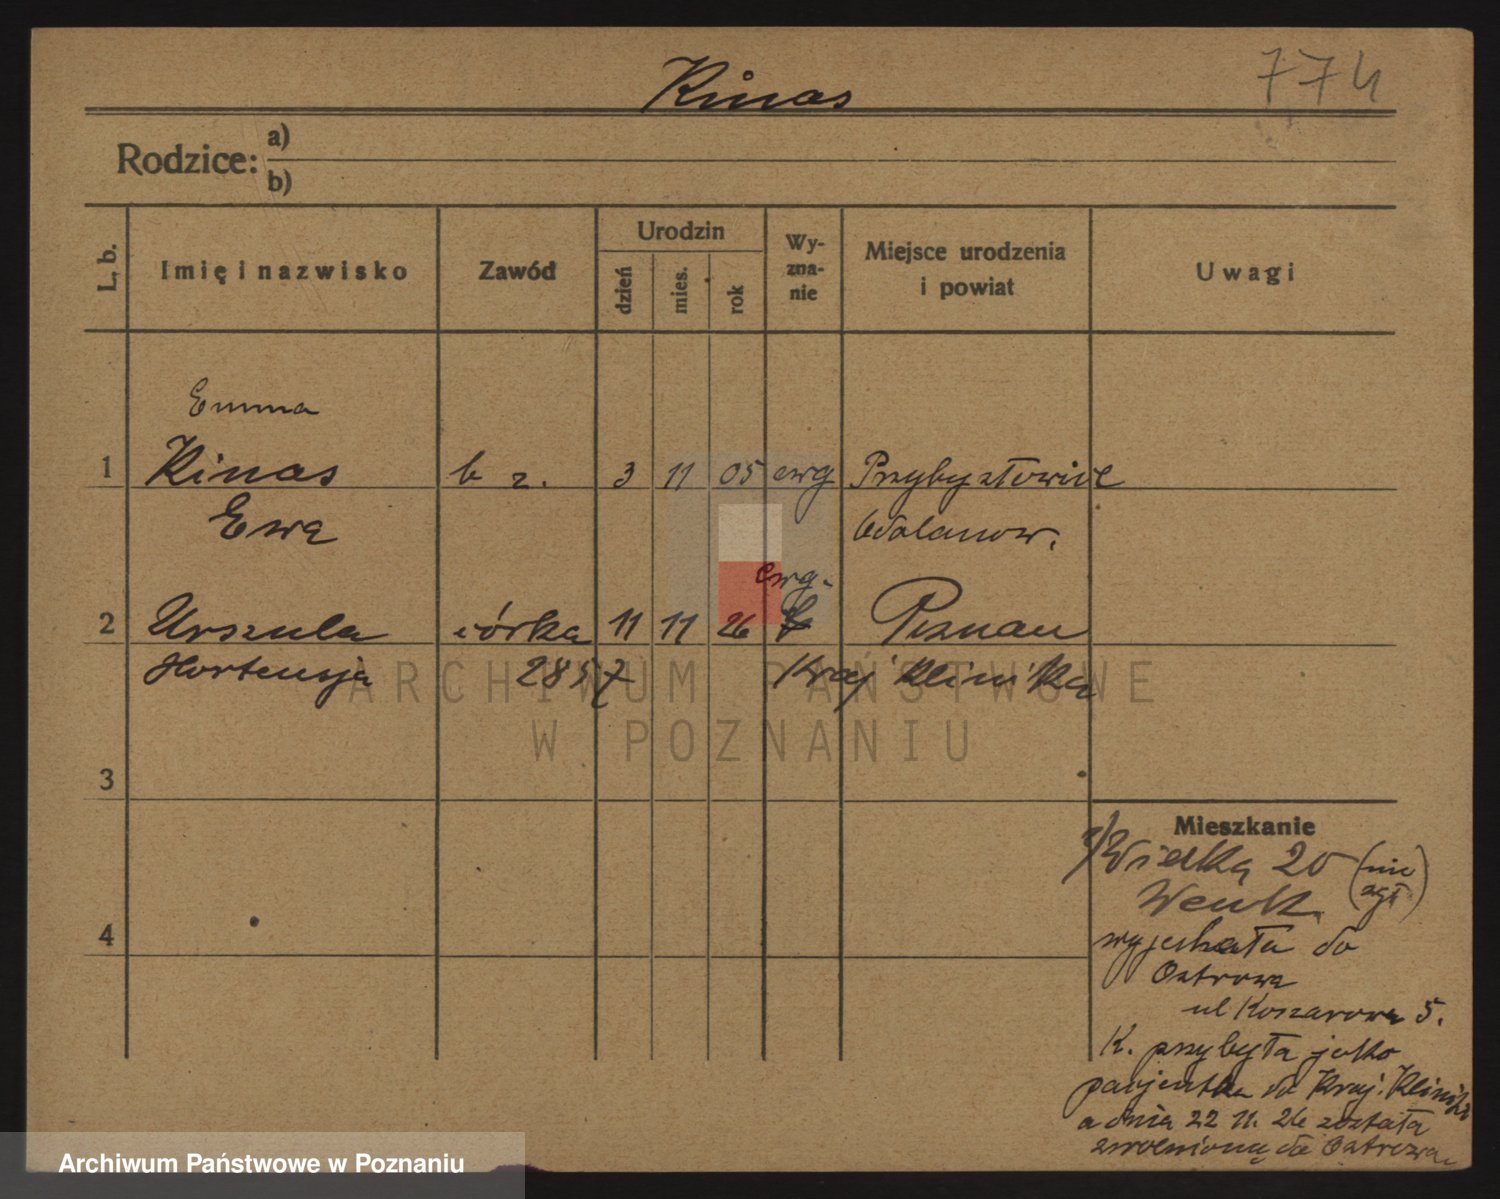 Kinas
774
Rodzice: a)
b)
L. b.
Imię i nazwisko
Zawód
Urodzin
dzień
mies.
rok
Wy-
zna-
nie
Miejsce urodzenia
i powiat
Uwagi
Emma
1 Kinas b z. 3 11 05 ewg Przybysławice
Ewa Odolanow.
ewg.
2 Urszula córka 11 11 26 Poznan
Hortensja 2857 Kraj Klinika
3
4
Mieszkanie
Wielka 20 (nie
zgł)
Wenk.
wyjechała do
Ostrowa
ul Koszarowa 5.
K. przybyła jako
pacjentka do Kraj. Kliniki
a dnia 22 11. 26 została
zwolnioną do Ostrowa.
ARCHIWUM PAŃSTWOWE
W POZNANIU
Archiwum Państwowe w Poznaniu